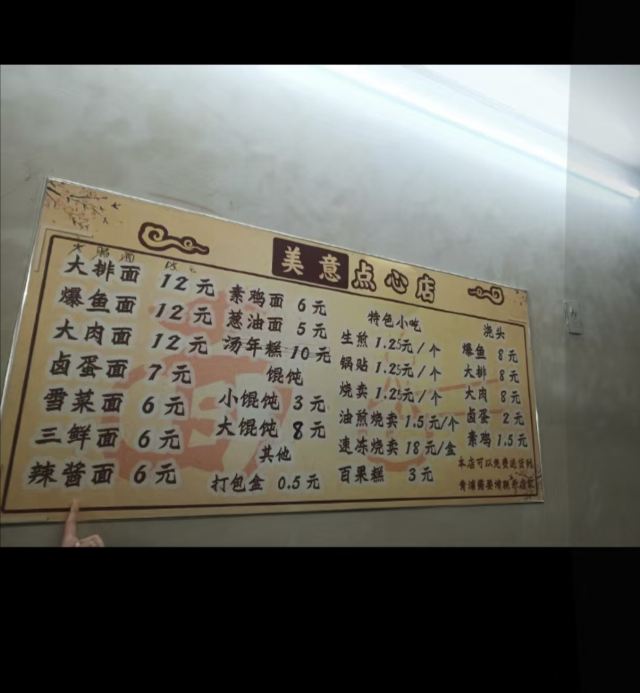 美意点心店
大肠面
大排面 12元
爆鱼面 12元
大肉面 12元
卤蛋面 7元
雪菜面 6元
三鲜面 6元
辣酱面 6元
素鸡面 6元
葱油面 5元
汤年糕 10元
馄饨
小馄饨 3元
大馄饨 8元
其他
打包盒 0.5元
特色小吃
生煎 1.25元/个
锅贴 1.25元/个
烧卖 1.25元/个
油煎烧卖 1.5元/个
速冻烧卖 18元/盒
百果糕 3元
浇头
爆鱼 8元
大排 8元
大肉 8元
卤蛋 2元
素鸡 1.5元
本店可以免费送货到